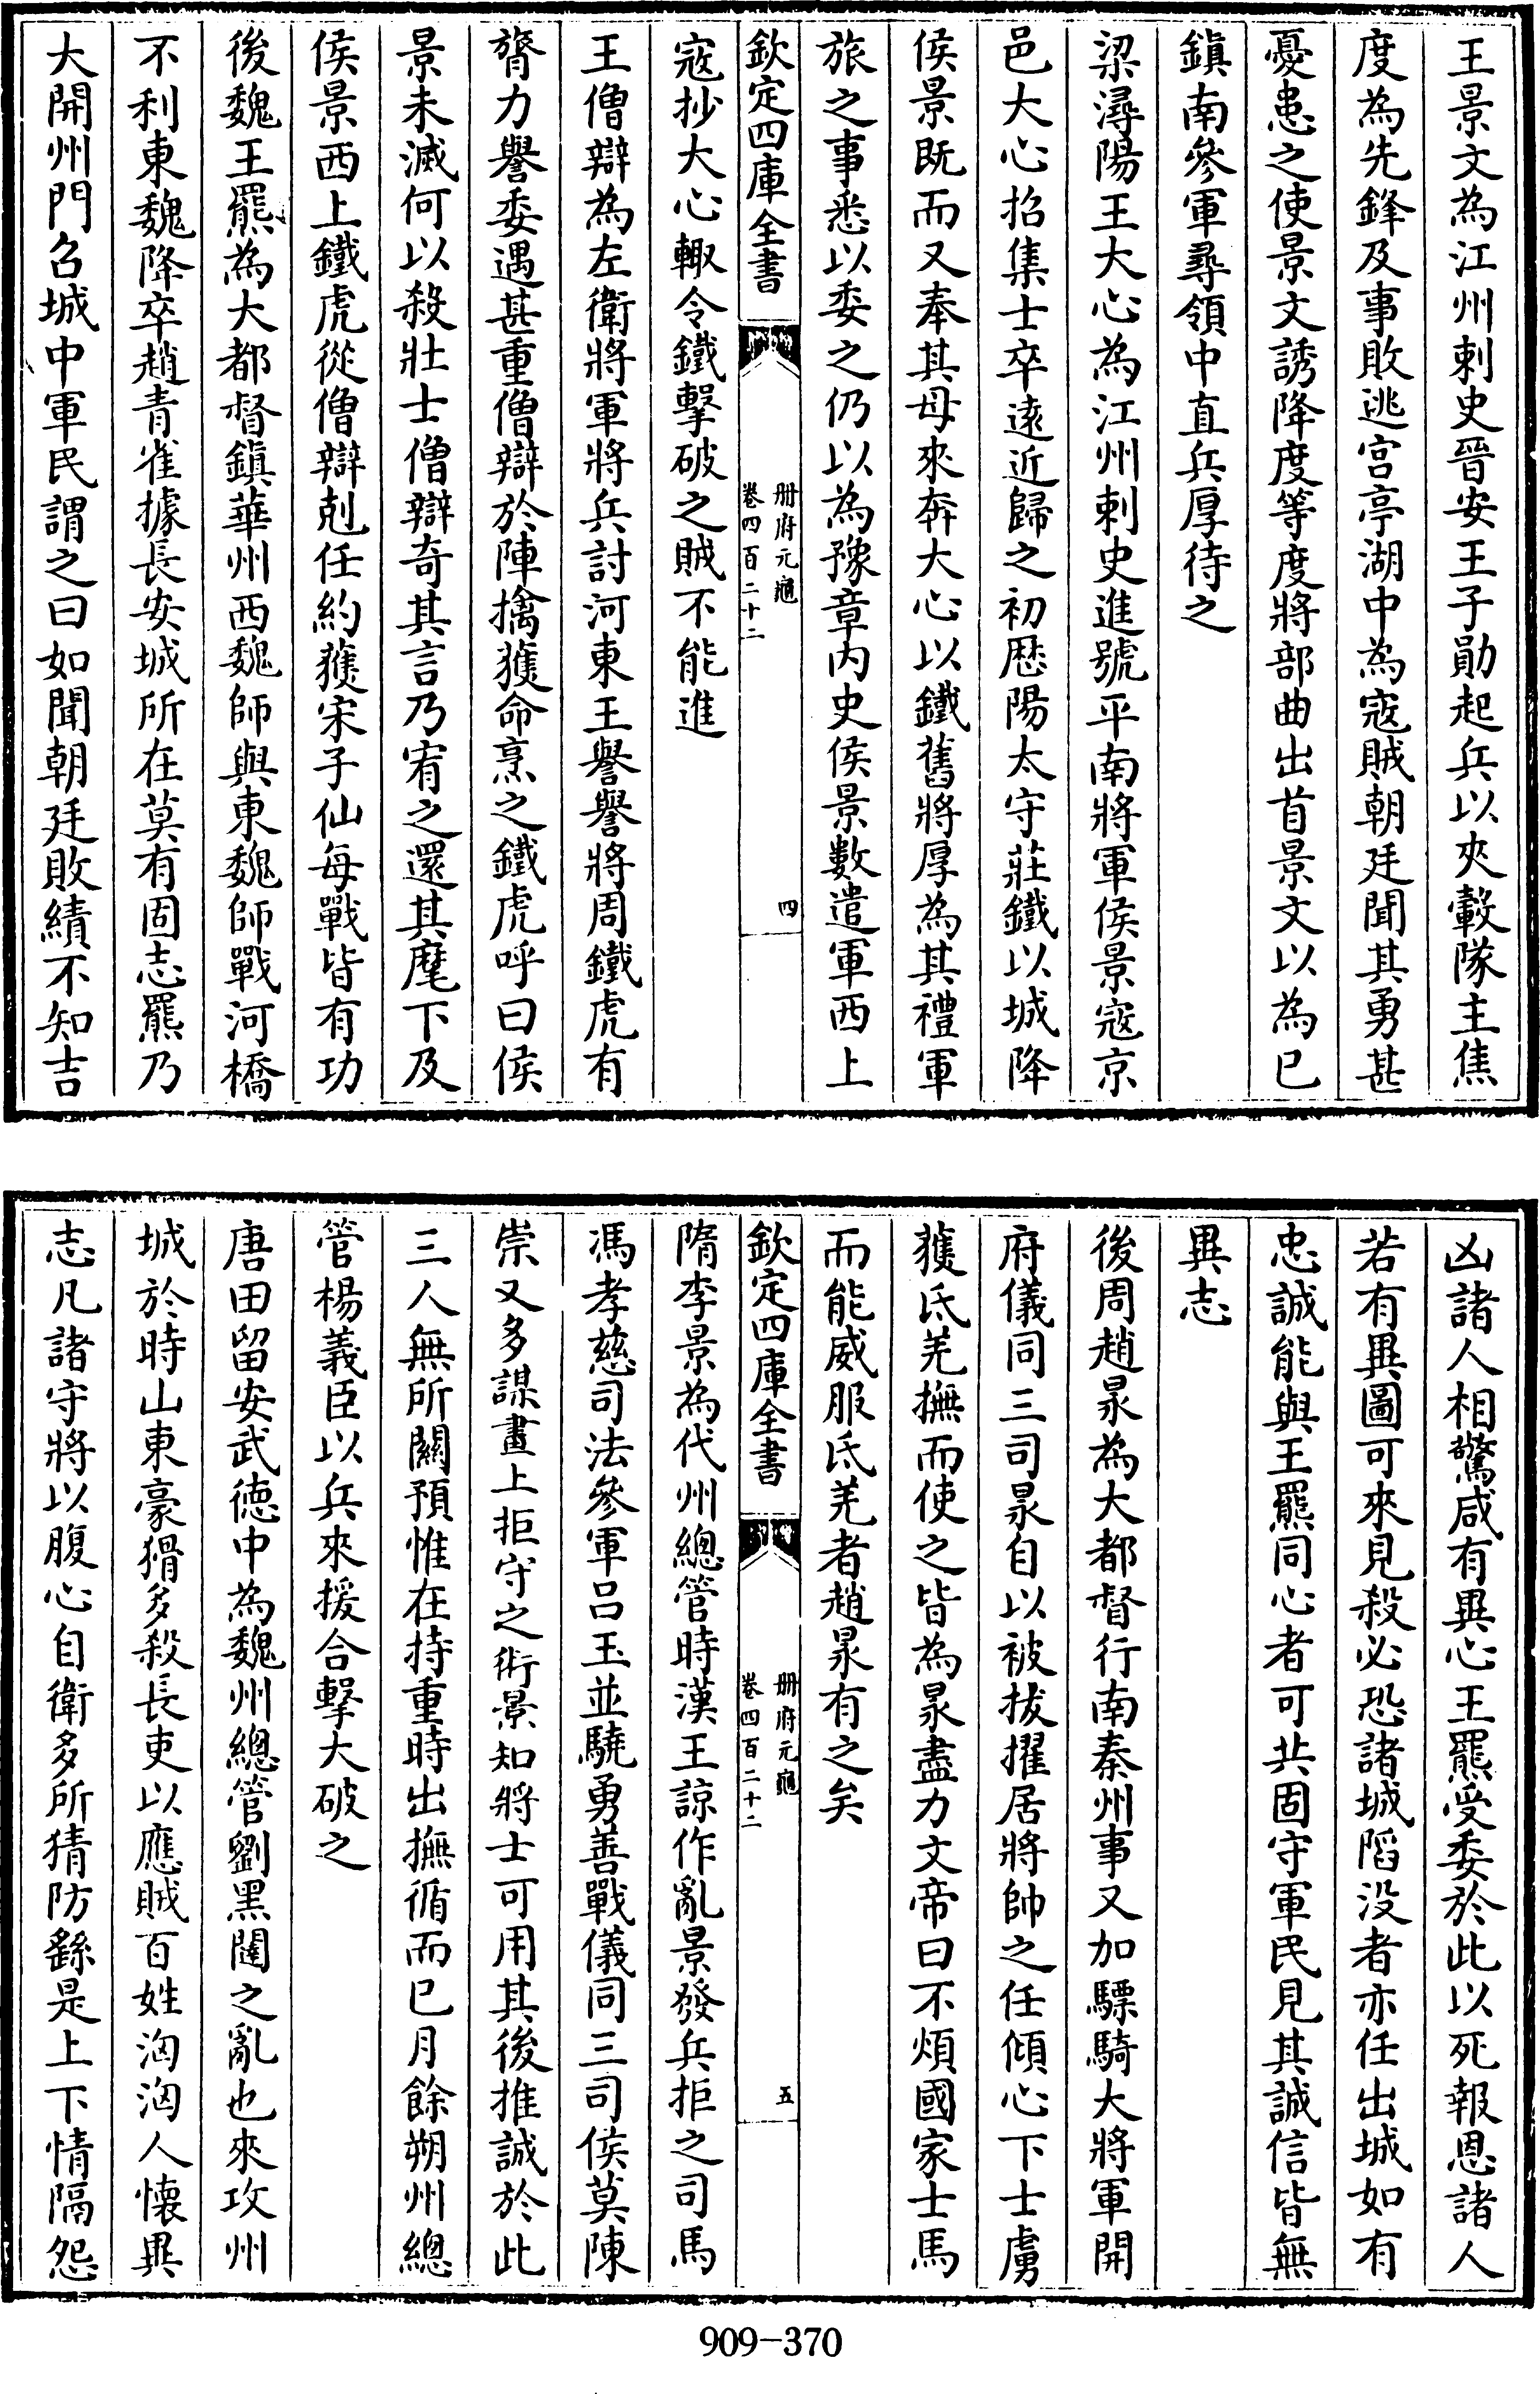 王景文為江州刺史晉安王子勛起兵以夾轂隊主焦
度為先鋒及事敗逃宮亭湖中為寇賊朝廷聞其勇甚
憂患之使景文誘降度等度將部曲出首景文以為已
鎮南參軍尋領中直兵厚待之
梁潯陽王大心為江州刺史進號平南將軍侯景寇京
邑大心招集士卒遠近歸之初厯陽太守莊鐵以城降
侯景既而又奉其母來奔大心以鐵舊將厚為其禮軍
旅之事悉以委之仍以為豫章内史侯景數遣軍西上
欽定四庫全書
冊府元龜
卷四百二十二
四
寇抄大心輙令鐵擊破之賊不能進
王僧辯為左衛將軍將兵討河東王譽譽將周鐵虎有
膂力譽委遇甚重僧辯於陣擒獲命烹之鐵虎呼曰侯
景未滅何以殺壯士僧辯奇其言乃宥之還其麾下及
侯景西上鐵虎從僧辯剋任約獲宋子仙每戰皆有功
後魏王羆為大都督鎮華州西魏師與東魏師戰河橋
不利東魏降卒趙青雀據長安城所在莫有固志羆乃
大開州門召城中軍民謂之曰如聞朝廷敗績不知吉
凶諸人相驚咸有異心王羆受委於此以死報恩諸人
若有異圖可來見殺必恐諸城䧟没者亦任出城如有
忠誠能與王羆同心者可共固守軍民見其誠信皆無
異志
後周趙㫤為大都督行南秦州事又加驃騎大將軍開
府儀同三司㫤自以被拔擢居將帥之任傾心下士虜
獲氐羌撫而使之皆為㫤盡力文帝曰不煩國家士馬
而能威服氐羌者趙㫤有之矣
欽定四庫全書
冊府元龜
卷四百二十二
五
隋李景為代州總管時漢王諒作亂景發兵拒之司馬
馮孝慈司法參軍吕玉並驍勇善戰儀同三司侯莫陳
崇又多謀畫上拒守之術景知將士可用其後推誠於此
三人無所關預惟在持重時出撫循而已月餘朔州總
管楊義臣以兵來援合擊大破之
唐田留安武徳中為魏州總管劉黑闥之亂也來攻州
城於時山東豪猾多殺長吏以應賊百姓洶洶人懷異
志凡諸守將以腹心自衛多所猜防繇是上下情隔怨
909-370